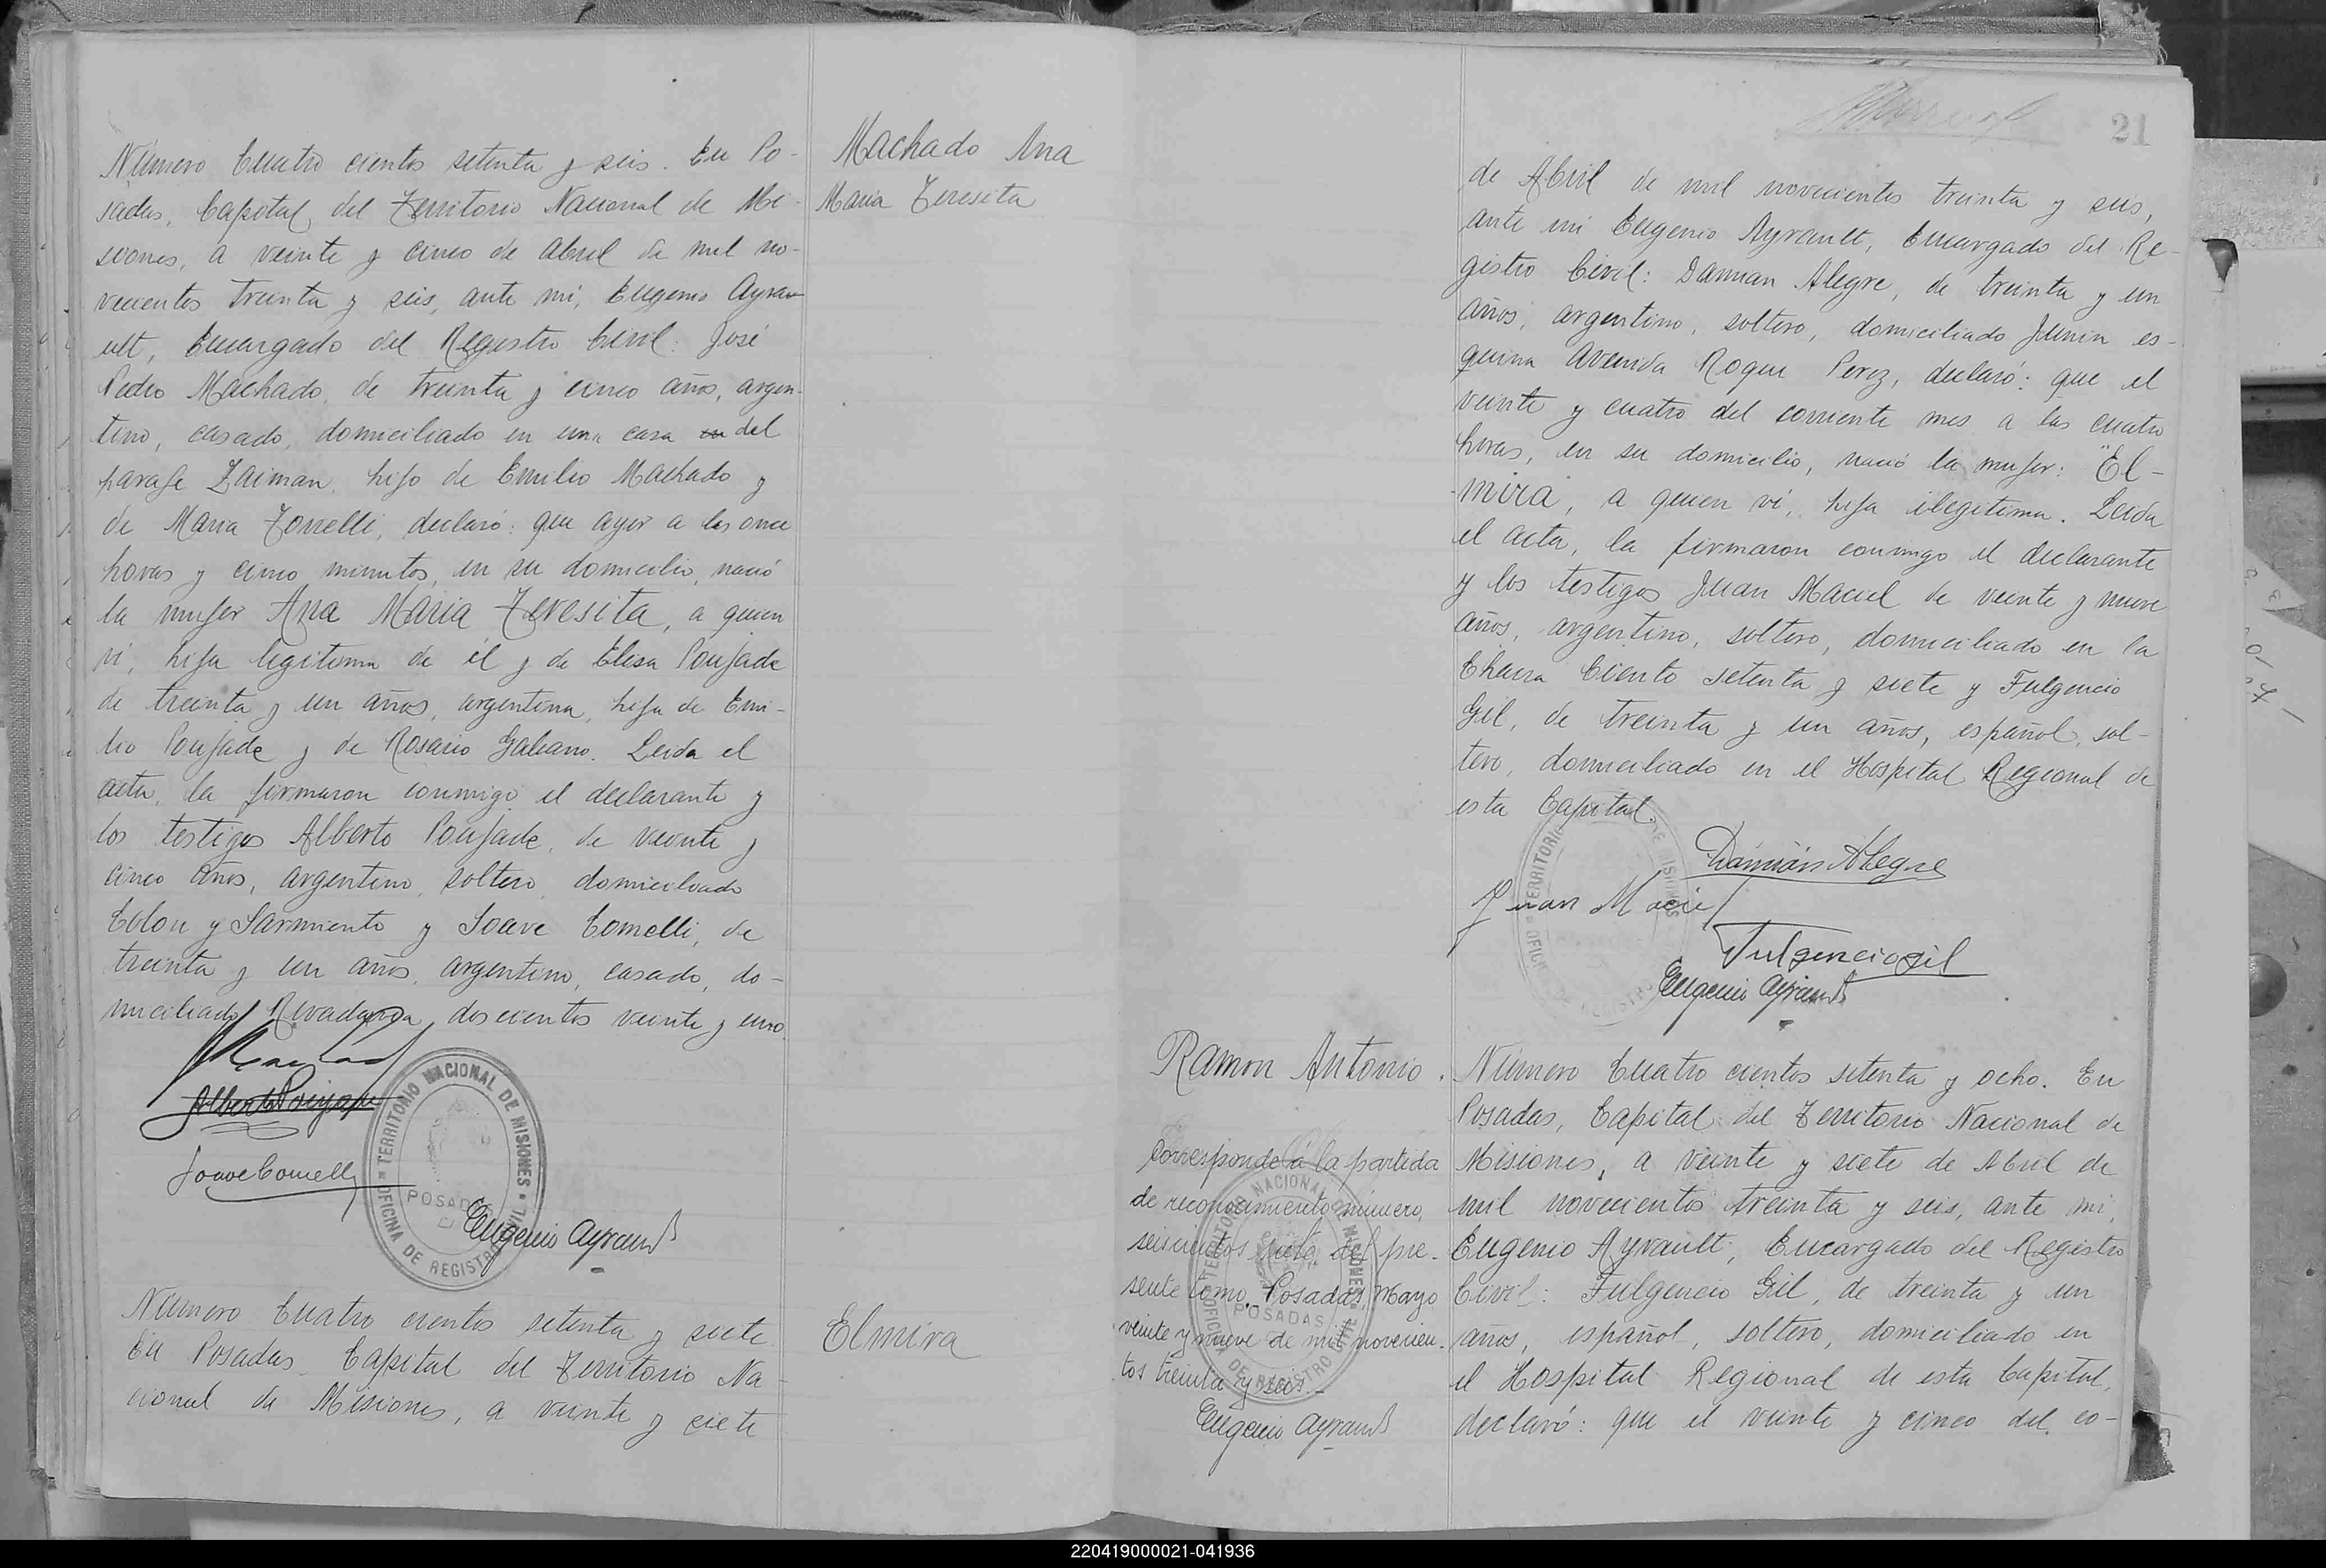 Número Cuatro cientos setenta y seis. En Po-
sadas, Capital del Territorio Nacional de Mi-
siones, a veinte y cinco de Abril de mil no-
vecientos treinta y seis, ante mi, Eugenio Ayra-
ult, Encargado del Registro Civil: José
Pedro Machado, de treinta y cinco años, argen-
tino, casado, domiciliado en una casa en del
paraje Zaiman, hijo de Emilio Machado y
de Maria Torrelli, declaró: que ayer a las once
horas y cinco minutos, en su domicilio, nació
la mujer Ana Maria Teresita, a quien
vi, hija legitima de él y de Elisa Poujade
de treinta y un años, argentina, hija de Emi-
lio Poujade y de Rosario Galeano. Leida el
acta, la firmaron conmigo el declarante y
los testigos Alberto Poujade, de veinte y
cinco años, argentino, soltero, domiciliado
Colon y Sarmiento y Soave Comelli, de
treinta y un años, argentino, casado, do-
miciliado Rivadavia doscientos veinte y uno.
Alberto Poujade
Soave Comelli
TERRITORIO NACIONAL DE MISIONES
OFICINA DE REGISTRO CIVIL
POSADAS
Eugenio Ayrault
Machado Ana
Maria Teresita
Número Cuatro cientos setenta y siete
En Posadas, Capital del Territorio Na-
cional de Misiones, a veinte y siete
Elmira
21
de Abril de mil novecientos treinta y seis,
ante mi Eugenio Ayrault, Encargado del Re-
gistro Civil: Damian Alegre, de treinta y un
años, argentino, soltero, domiciliado Junin es-
quina Avenida Roque Perez, declaró: que el
veinte y cuatro del corriente mes a las cuatro
horas, en su domicilio, nació la mujer: "El-
mira, a quien vi, hija ilegitima. Leida
el acta, la firmaron conmigo el declarante
y los testigos Juan Maciel de veinte y nueve
años, argentino, soltero, domiciliado en la
Chacra Ciento setenta y siete y Fulgencio
Gil, de treinta y un años, español, sol-
tero, domiciliado en el Hospital Regional de
esta Capital.
Damián Alegre
Juan Maciel
Fulgencio Gil
Eugenio Ayrault
Ramon Antonio.
Corresponde á la partida
de reconocimiento número,
seiscientos siete del pre-
sente tomo. Posadas, Mayo
veinte y nueve de mil novecien-
tos treinta y seis.
Eugenio Ayrault
TERRITORIO NACIONAL DE MISIONES
OFICINA DE REGISTRO CIVIL
POSADAS
Número Cuatro cientos setenta y ocho. En
Posadas, Capital del Territorio Nacional de
Misiones, a veinte y siete de Abril de
mil novecientos treinta y seis, ante mi,
Eugenio Ayrault, Encargado del Registro
Civil: Fulgencio Gil, de treinta y un
años, español, soltero, domiciliado en
el Hospital Regional de esta Capital,
declaró: que el veinte y cinco del co-
220419000021-041936